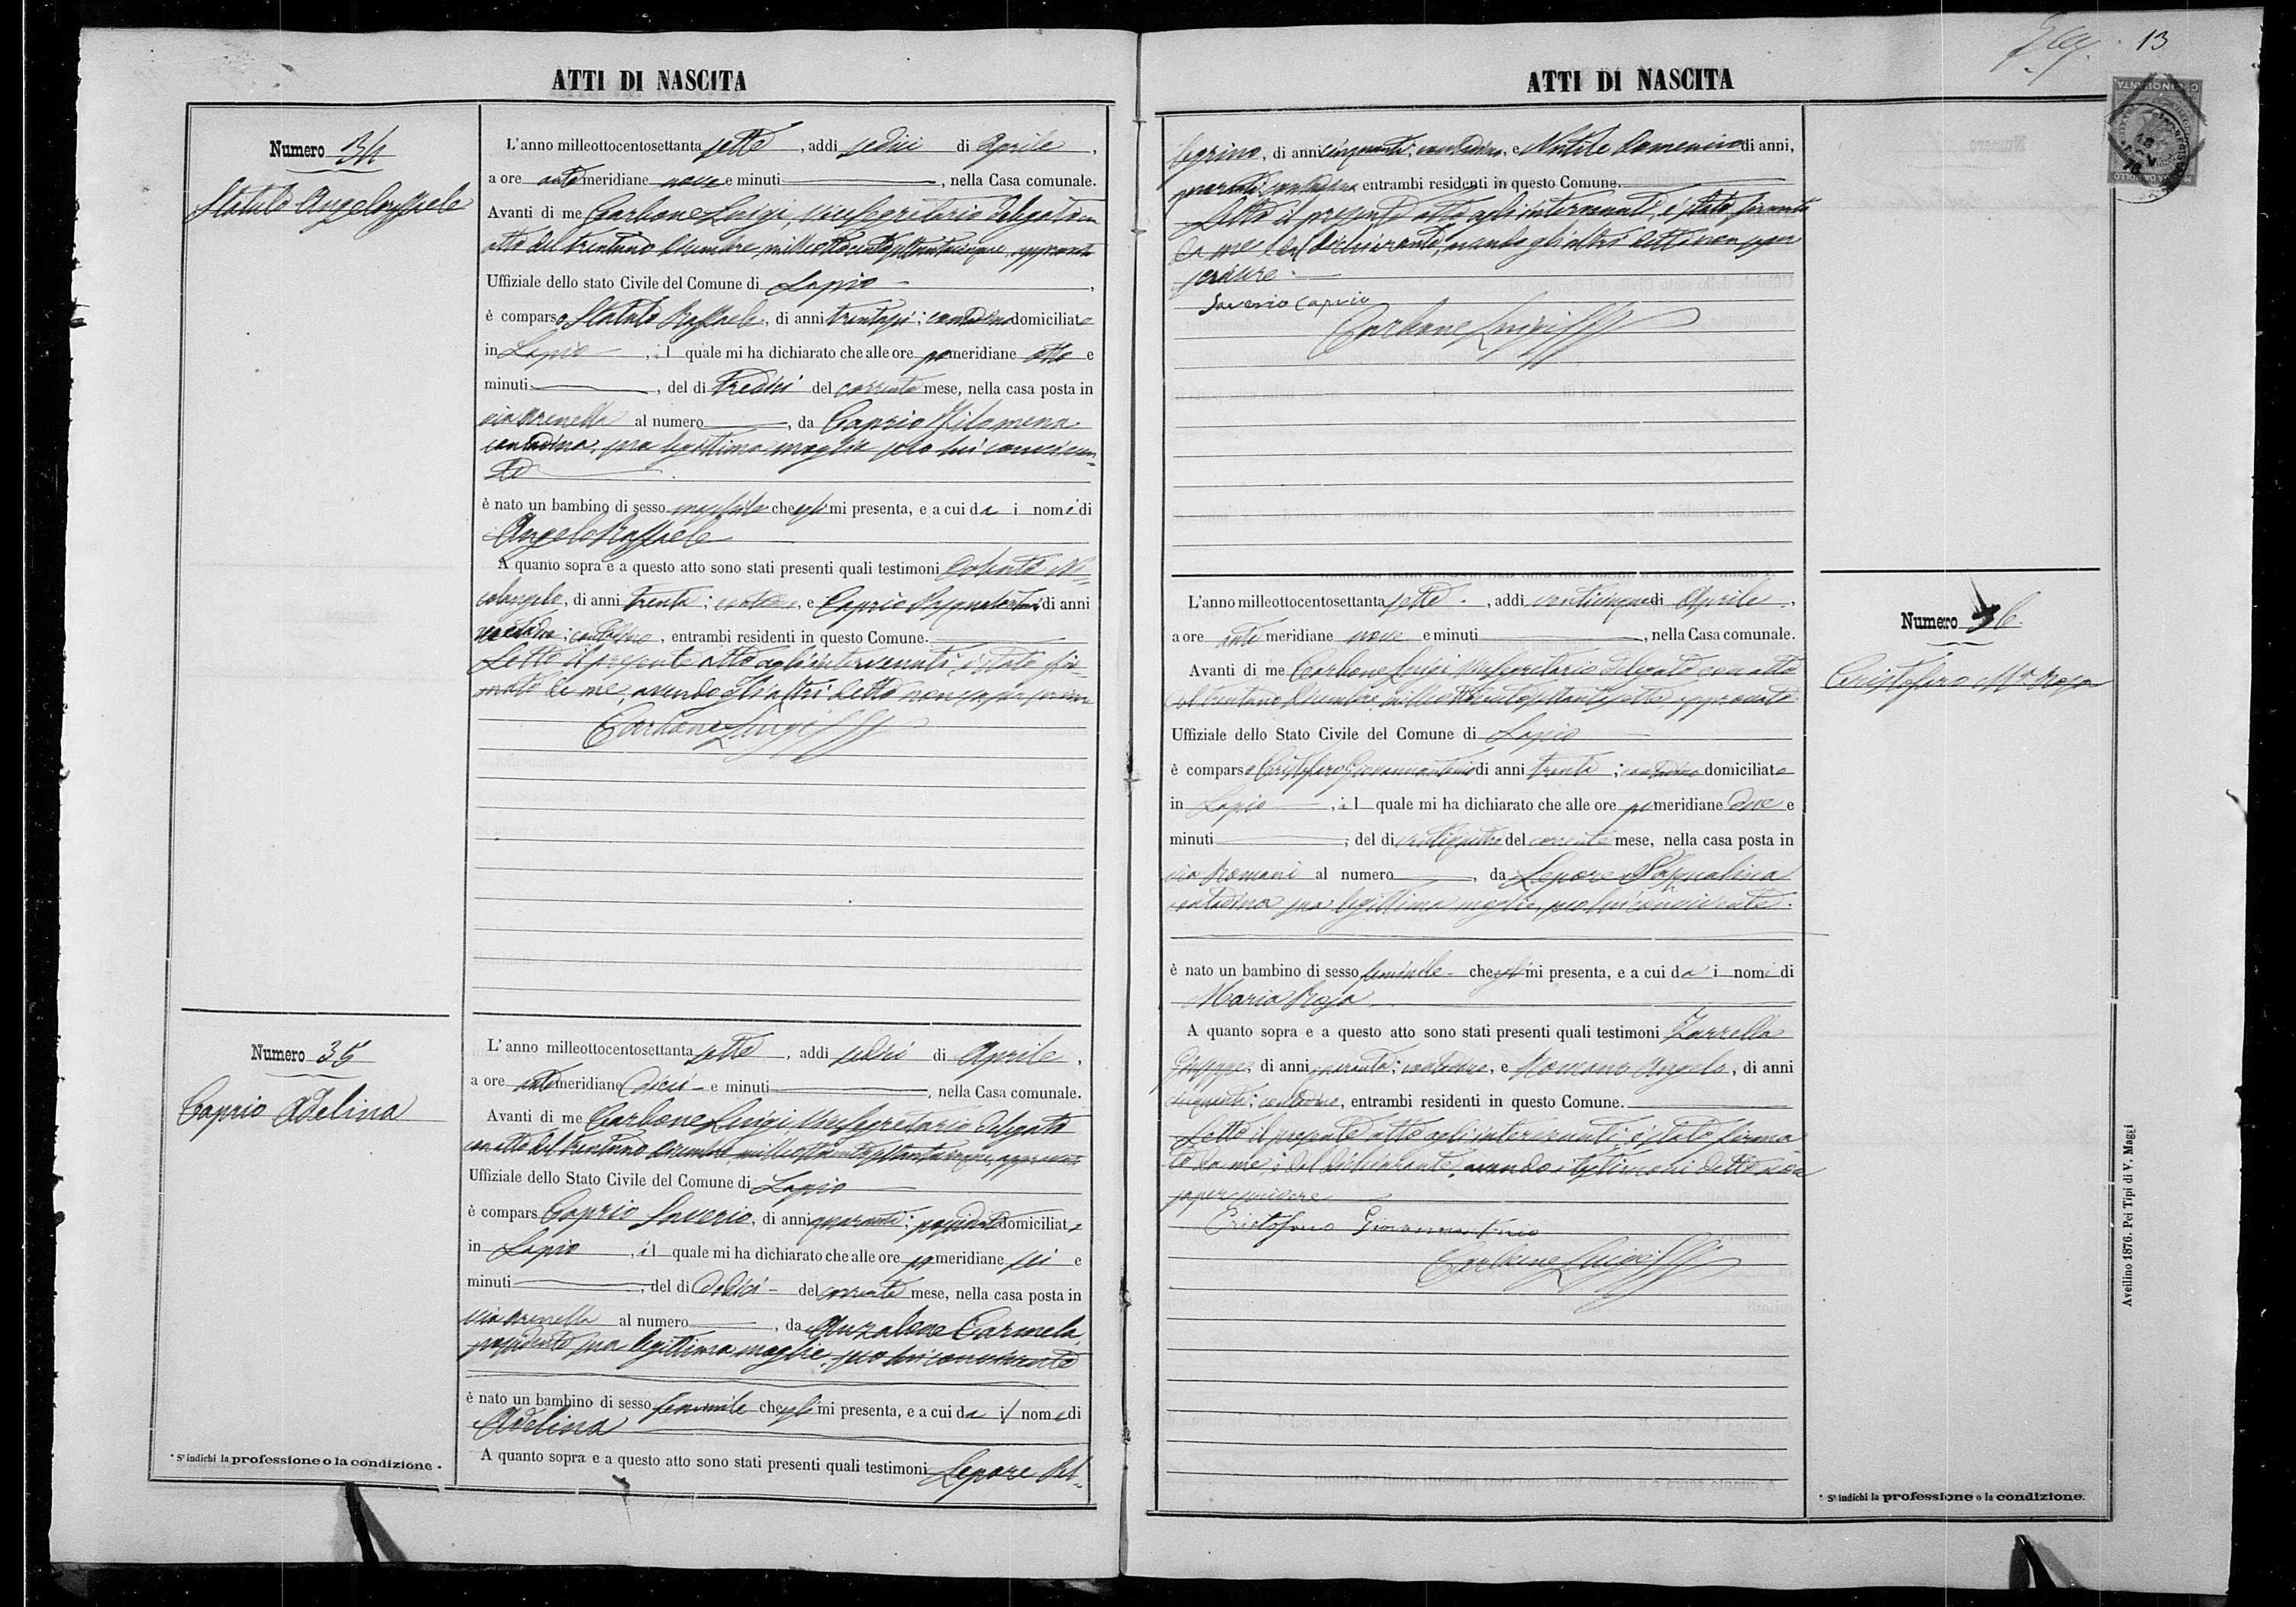 ATTI DI NASCITA
Numero 34
Statuto Angeloraffaele
L'anno milleottocentosettanta sette, addi sedici di Aprile,
a ore antemeridiane nove e minuti, nella Casa comunale.
Avanti di me Carbone Luigi, Vicesegretario delegato con
atto del trentuno Dicembre milleottocentosettantacinque, approvato
Uffiziale dello stato Civile del Comune di Lapio,
è comparso Statuto Raffaele, di anni trentasei; contadino domiciliato
in Lapio, il quale mi ha dichiarato che alle ore pomeridiane otto e
minuti, del di tredici del corrente mese, nella casa posta in
via Arenella al numero, da Caprio Filomena
contadina, sua legittima moglie seco lui conviven-
te
è nato un bambino di sesso maschile che egli mi presenta, e a cui da i nomi di
Angelo Raffaele
A quanto sopra e a questo atto sono stati presenti quali testimoni Ni-
colangelo, di anni trenta; contadino, e Caprio di anni
; contadino, entrambi residenti in questo Comune.
Letto il presente atto agli intervenuti, è stato fir-
mato da me, avendo gli altri detto non saper scrivere
Carbone Luigi
Numero 35
Caprio Adelina
L'anno milleottocentosettanta sette, addi sedici di Aprile,
a ore antemeridiane dieci e minuti, nella Casa comunale.
Avanti di me Carbone Luigi Vicesegretario delegato
con atto del trentuno Dicembre milleottocentosettantacinque, approvato
Uffiziale dello Stato Civile del Comune di Lapio
è compars Caprio Saverio, di anni quaranta; possidente domiciliato
in Lapio, il quale mi ha dichiarato che alle ore pomeridiane sei e
minuti, del di dodici del corrente mese, nella casa posta in
via Arenella al numero, da Anzalone Carmela
possidente sua legittima moglie, seco lui convivente
è nato un bambino di sesso feminile che egli mi presenta, e a cui da il nome di
Adelina
A quanto sopra e a questo atto sono stati presenti quali testimoni Lepore Pel-
* S'indichi la professione o la condizione.
13
ATTI DI NASCITA
legrino, di anni cinquanta; contadino, e Nutile Domenico di anni,
quaranta, contadino entrambi residenti in questo Comune.
Letto il presente atto agli intervenuti, è stato firmato
da me e dal dichiarante, avendo gli altri detto non saper
scrivere.
Saverio Caprio
Carbone Luigi
Numero 36.
Cristofaro Ma Rosa
L'anno milleottocentosettanta sette, addi venticinque di Aprile,
a ore ante meridiane nove e minuti, nella Casa comunale.
Avanti di me Carbone Luigi Vicesegretario delegato con atto
del trentuno Dicembre approvato
Uffiziale dello Stato Civile del Comune di Lapio
è comparso Cristofaro Giovannantonio di anni trenta; contadino domiciliato
in Lapio, il quale mi ha dichiarato che alle ore pomeridiane due e
minuti, del di ventiquattro del corrente mese, nella casa posta in
via Romani al numero, da Lepore Pasqualina
contadina sua legittima moglie, seco lui convivente.
è nato un bambino di sesso feminile che egli mi presenta, e a cui da i nomi di
Maria Rosa
A quanto sopra e a questo atto sono stati presenti quali testimoni Zarrella
Giuseppe, di anni quaranta; contadino, e Romano Angelo, di anni
cinquanta; contadino, entrambi residenti in questo Comune.
Letto il presente atto agli intervenuti, è stato firma-
to da me e dal dichiarante, avendo i testimoni detto non
saper scrivere
Cristofaro Giovannantonio
Carbone Luigi
* S'indichi la professione o la condizione.
Avellino 1876. Pei Tipi di V. Maggi